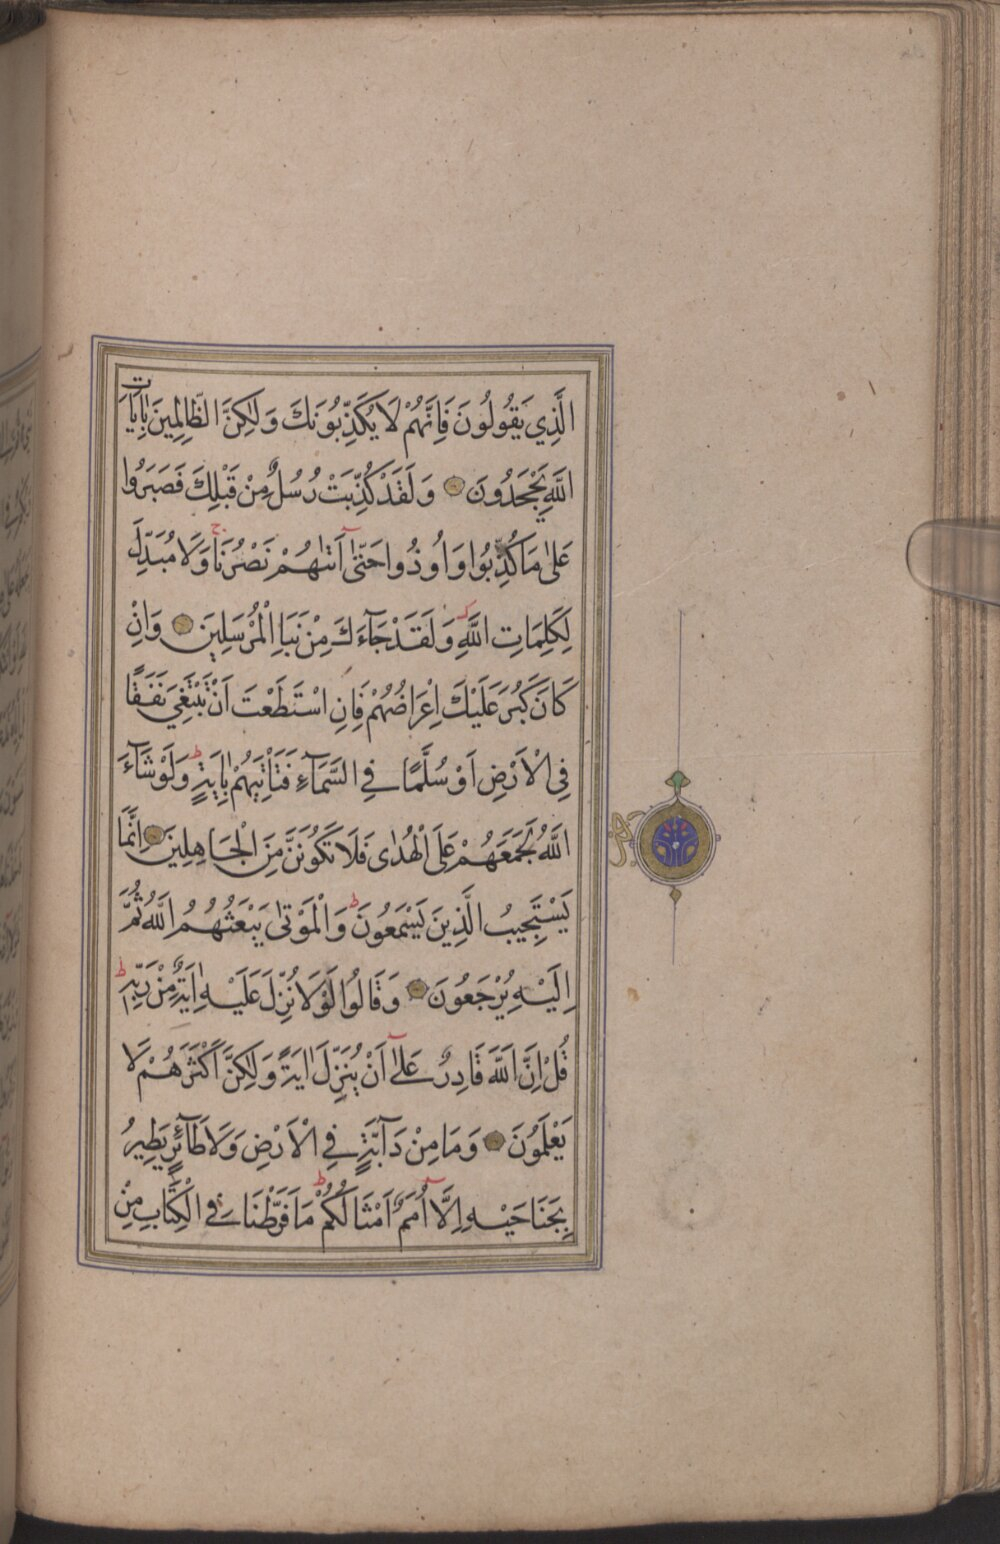 الَّذِي يَقُولُونَ فَاِنَّهُمْ لَا يُكَذِّبُونَكَ وَلٰكِنَّ الظَّالِمِينَ بِاٰيَاتِ
اللّٰهِ يَجْحَدُونَ وَلَقَدْ كُذِّبَتْ رُسُلٌ مِنْ قَبْلِكَ فَصَبَرُوا
عَلٰى مَا كُذِّبُوا وَاُوذُوا حَتّٰىٓ اَتٰىهُمْ نَصْرُنَا ج وَلَا مُبَدِّلَ
لِكَلِمَاتِ اللّٰهِ وَلَقَدْ جَآءَكَ مِنْ نَبَاِ الْمُرْسَلِينَ وَاِنْ
كَانَ كَبُرَ عَلَيْكَ اِعْرَاضُهُمْ فَاِنِ اسْتَطَعْتَ اَنْ تَبْتَغِيَ نَفَقًا
فِي الْاَرْضِ اَوْ سُلَّمًا فِي السَّمَآءِ فَتَاْتِيَهُمْ بِاٰيَةٍ ط وَلَوْ شَآءَ
اللّٰهُ لَجَمَعَهُمْ عَلَى الْهُدٰى فَلَا تَكُونَنَّ مِنَ الْجَاهِلِينَ اِنَّمَا
يَسْتَجِيبُ الَّذِينَ يَسْمَعُونَ ط وَالْمَوْتٰى يَبْعَثُهُمُ اللّٰهُ ثُمَّ
اِلَيْهِ يُرْجَعُونَ وَقَالُوا لَوْلَا نُزِّلَ عَلَيْهِ اٰيَةٌ مِنْ رَبِّهِ ط
قُلْ اِنَّ اللّٰهَ قَادِرٌ عَلٰىٓ اَنْ يُنَزِّلَ اٰيَةً وَلٰكِنَّ اَكْثَرَهُمْ لَا
يَعْلَمُونَ وَمَا مِنْ دَآبَّةٍ فِي الْاَرْضِ وَلَا طَآئِرٍ يَطِيرُ
بِجَنَاحَيْهِ اِلَّآ اُمَمٌ اَمْثَالُكُمْ ط مَا فَرَّطْنَا فِي الْكِتَابِ مِنْ